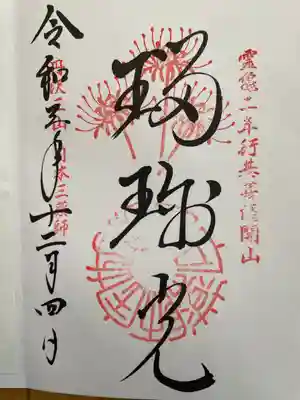 靈龜二年行基菩薩開山
瑠璃光
日本三薬師
令和五年十二月四日